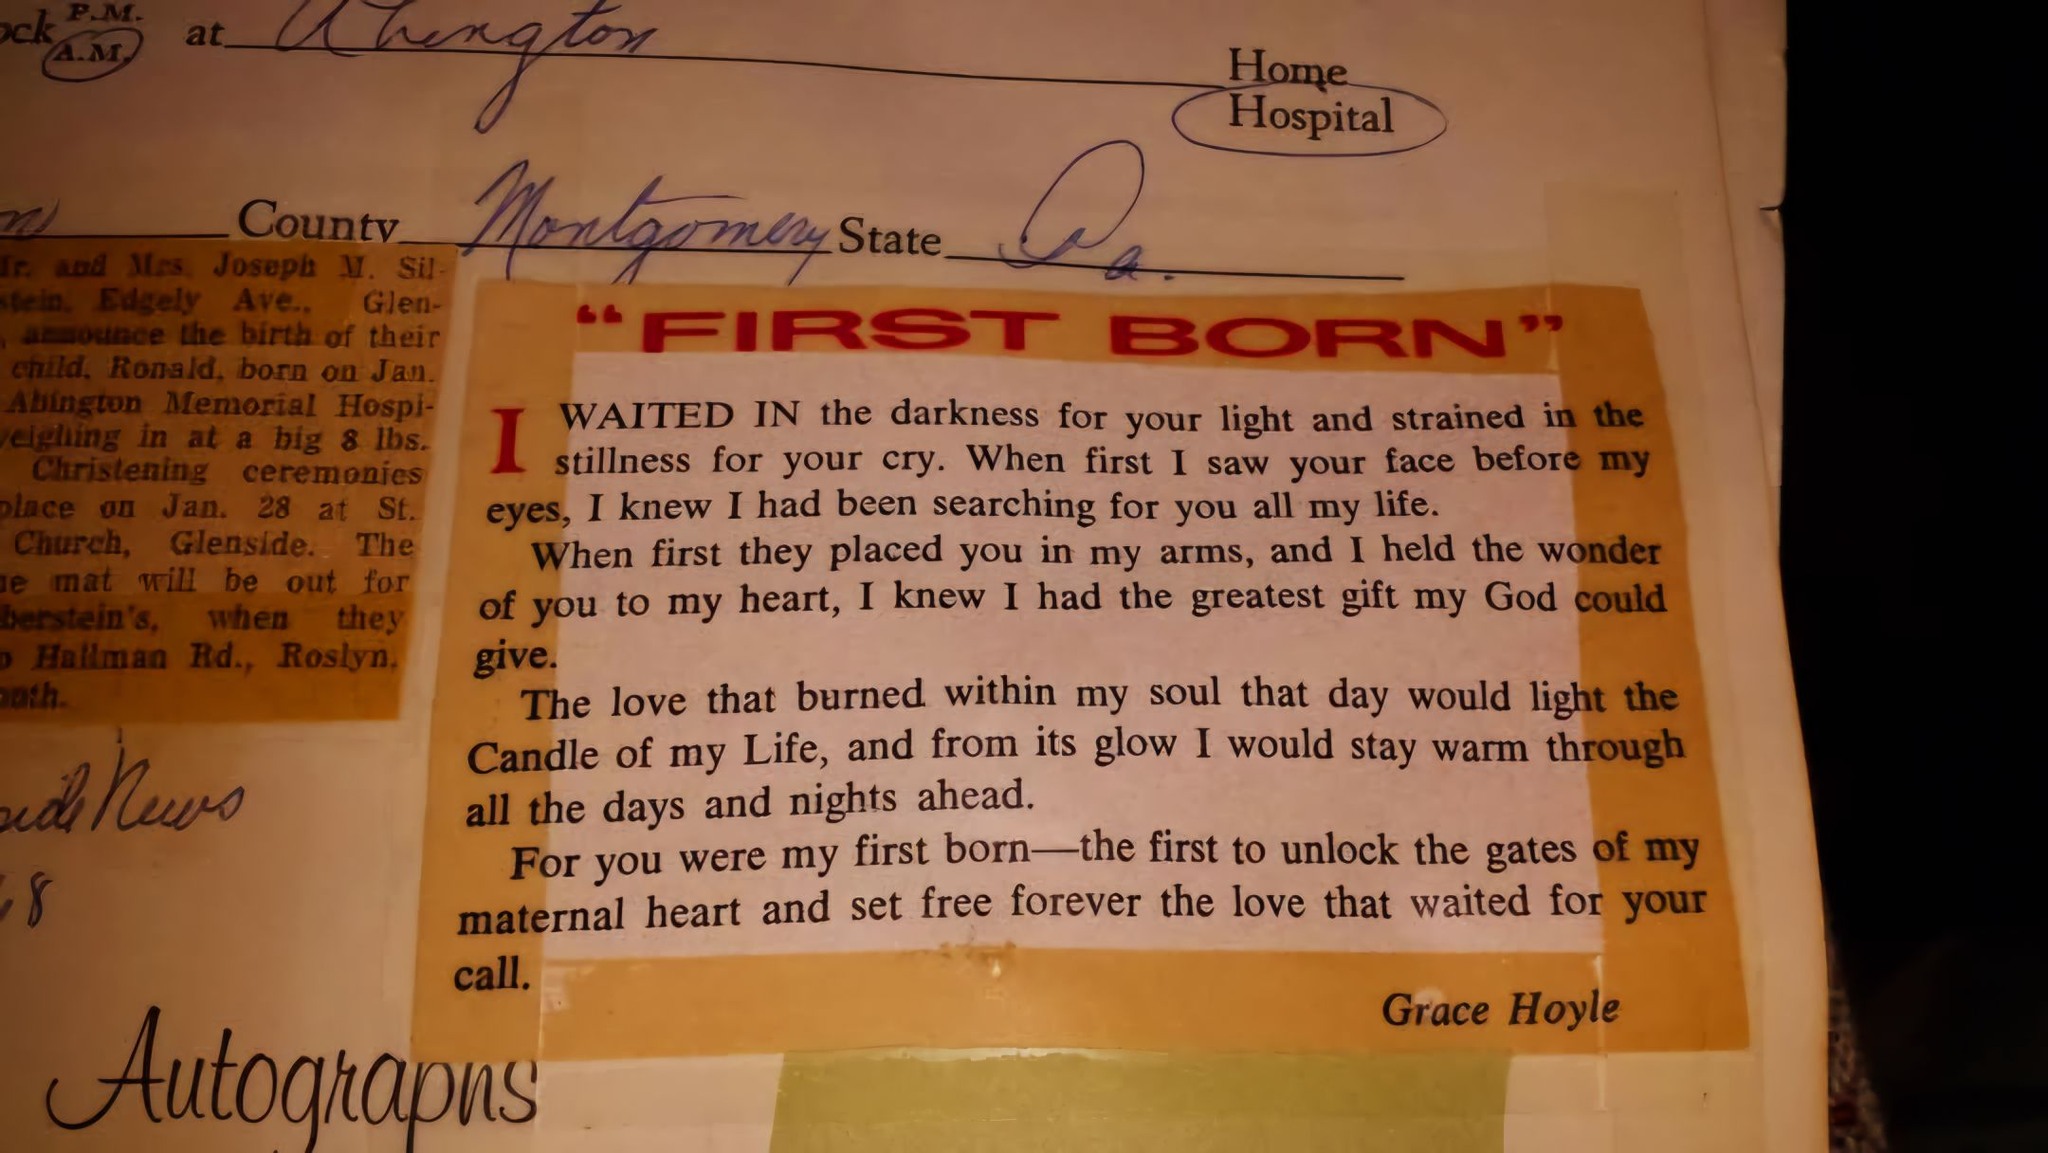 P.M.
ock A.M. at Abington
Home
Hospital
County Montgomery State Pa.
Mr. and Mrs. Joseph M. Sil-
stein, Edgely Ave., Glen-
, announce the birth of their
child, Ronald, born on Jan.
Abington Memorial Hospi-
weighing in at a big 8 lbs.
Christening ceremonies
place on Jan. 28 at St.
Church, Glenside. The
me mat will be out for
berstein's, when they
o Hallman Rd., Roslyn,
onth.
"FIRST BORN"
I WAITED IN the darkness for your light and strained in the
stillness for your cry. When first I saw your face before my
eyes, I knew I had been searching for you all my life.
When first they placed you in my arms, and I held the wonder
of you to my heart, I knew I had the greatest gift my God could
give.
The love that burned within my soul that day would light the
Candle of my Life, and from its glow I would stay warm through
all the days and nights ahead.
For you were my first born—the first to unlock the gates of my
maternal heart and set free forever the love that waited for your
call.
Grace Hoyle
side News
68
Autographs